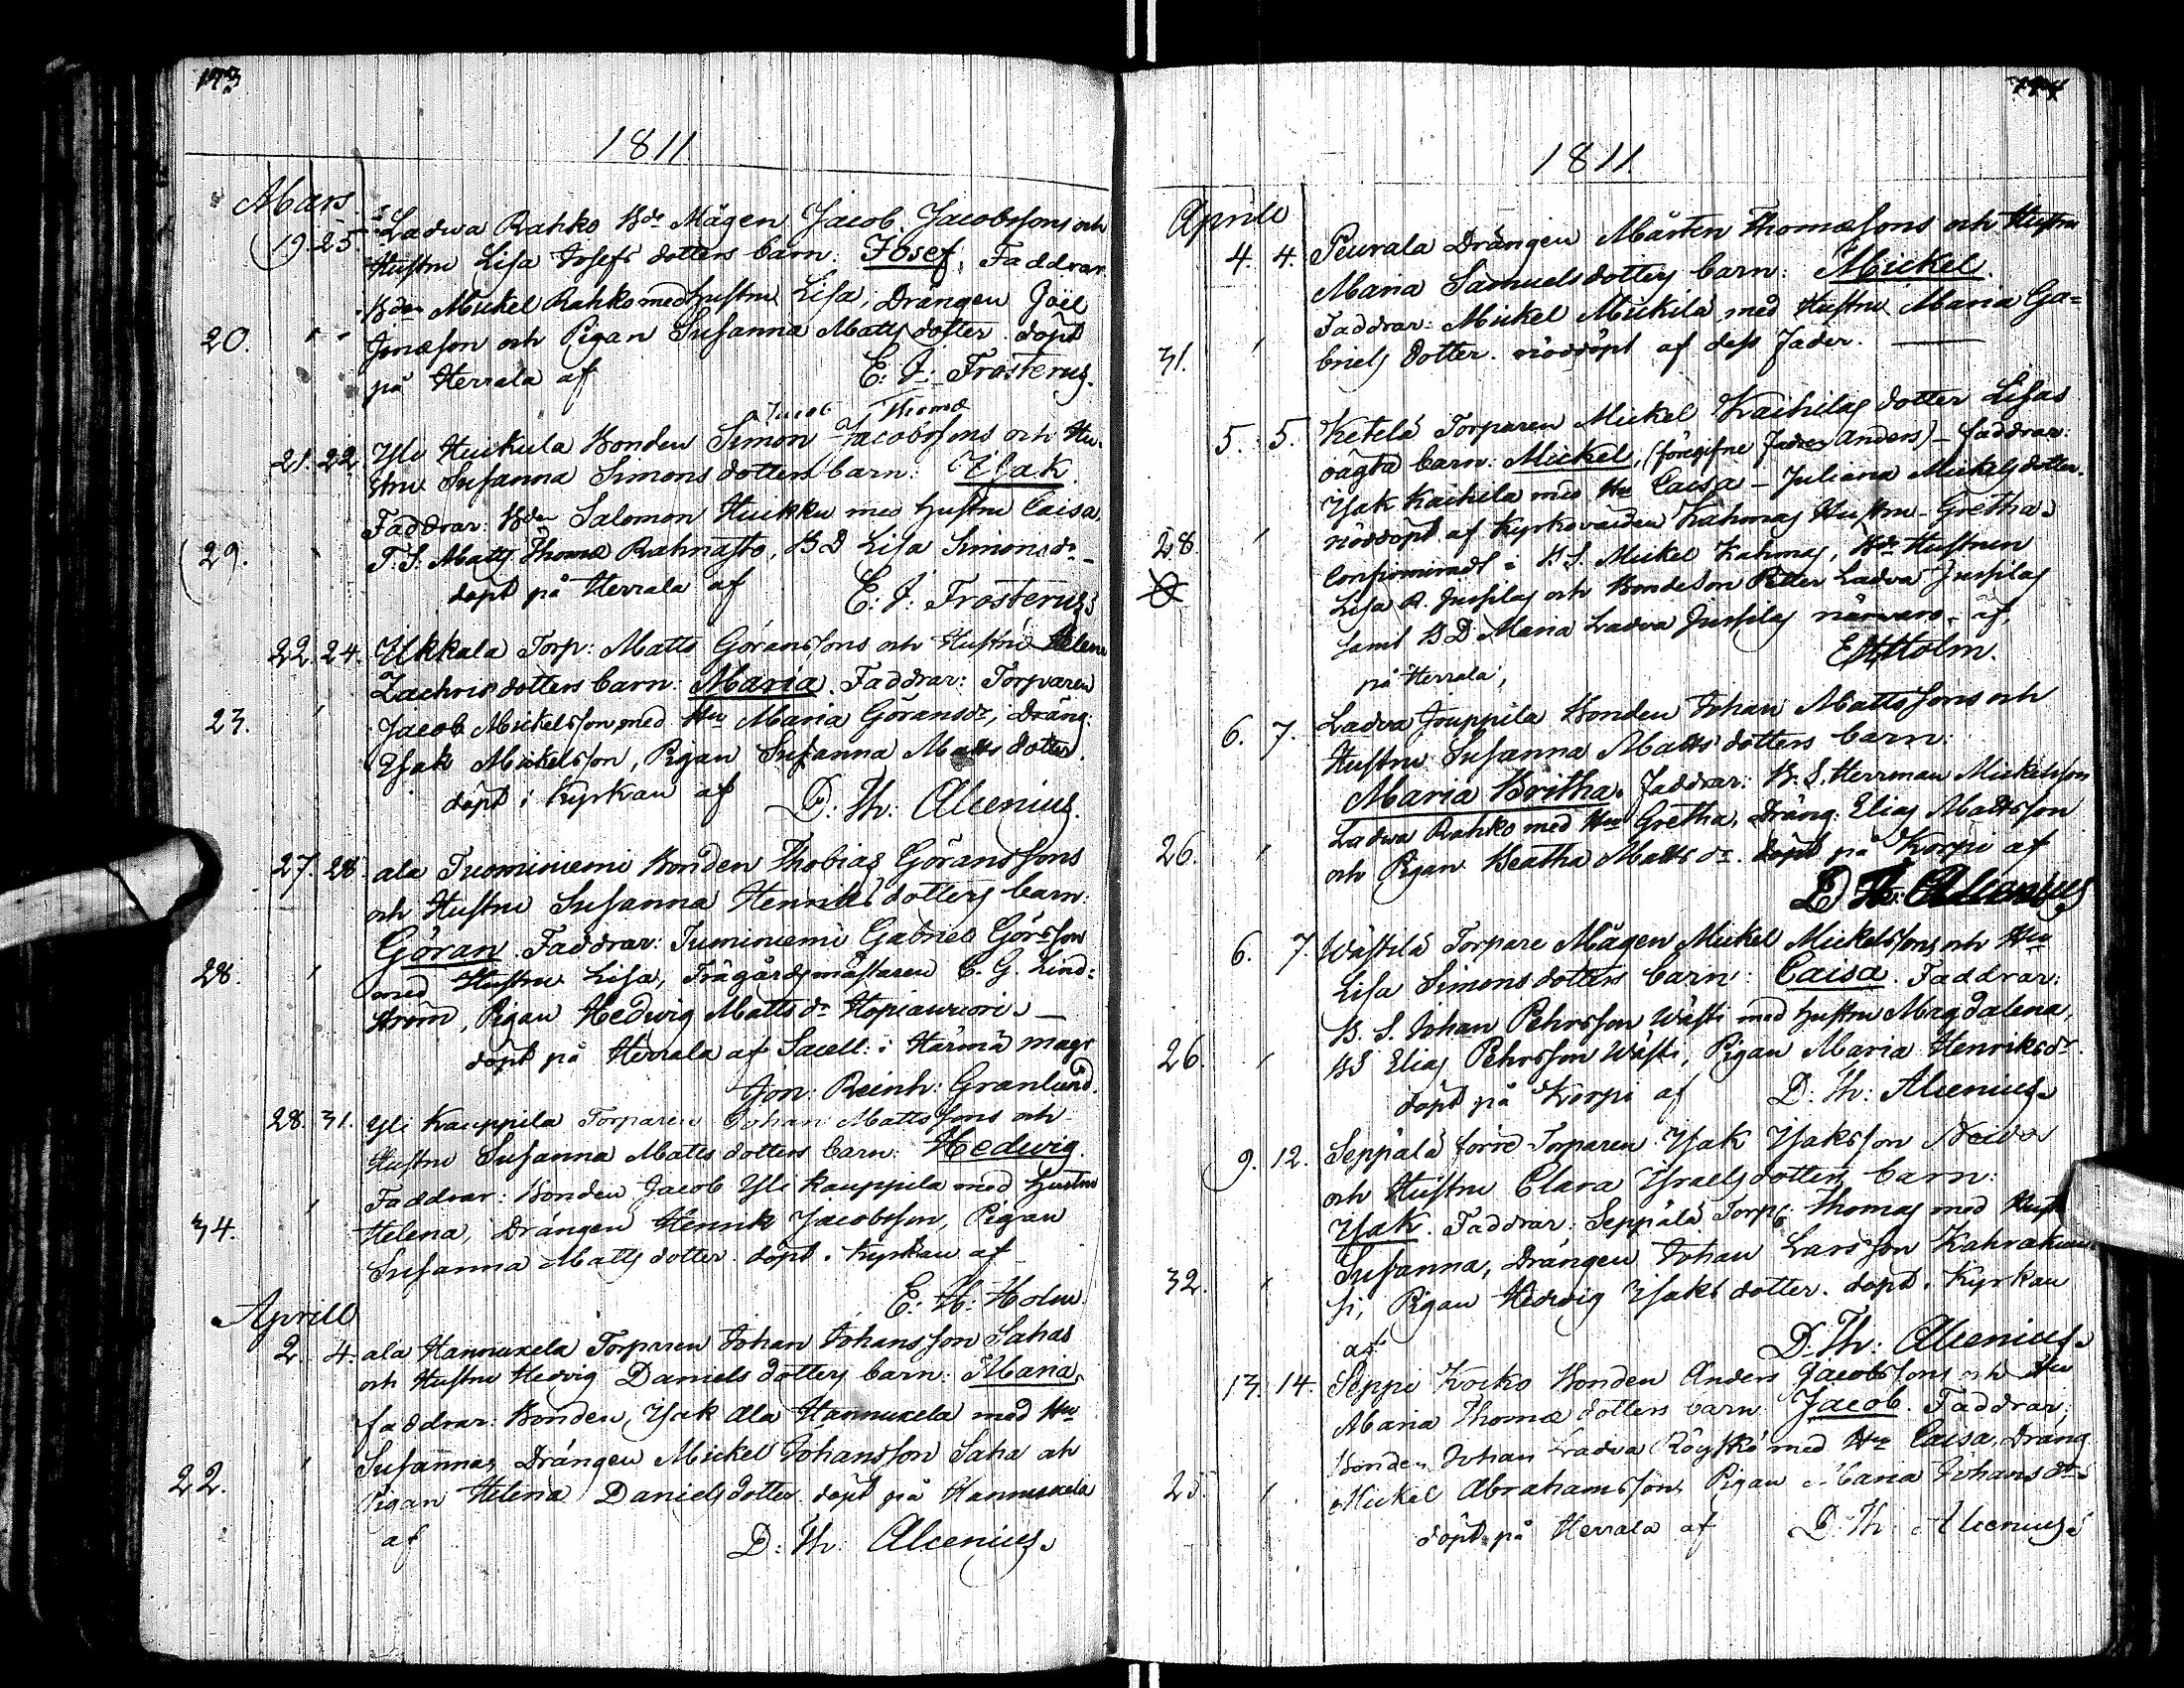 173
1811
Mars
19. 25. Ladwa Rahko Bde Mågen Jacob Jacobssons och
Hustru Lisa Josefs dotters barn: Josef. Faddrar
Bden Mickel Rahko med Hustru Lisa, Drängen Joel
20. Jonæson och Pigan Susanna Matts dotter. döpt
på Herrala af E: J: Frosterus.
Jacob Thomæ
21. 22. Yli Huikula Bonden Simon Jacobssons och Hu-
stru Susanna Simons dotters barn: Isak.
Faddrar: Bden Salomon Huikku med hustru Caisa,
29. T. S. Matts Thomæ Rahnasto, B D Lisa Simonsdr
döpt på Herrala af E: J: Frosterus
22. 24. Ukkala Torp: Matts Göranssons och Hustru Helena
Zachrisdotters barn: Maria. Faddrar: Torparen
23. Jacob Mickelsson, med Hu Maria Göransdr, Dräng:
Isak Mickelsson, Pigan Susanna Matts dotter.
döpt i Kyrkan af D: Th: Alcenius.
27. 28. ala Tuominiemi Bonden Thobias Göranssons
och Hustru Susanna Henriks dotters barn:
Göran. Faddrar: Tuminiemi Gabriel Görsson
28. med Hustru Lisa, Trägårdsmästaren C. G. Lind-
ström, Pigan Hedwig Mattsdr Hopiavuori
döpt på Herrala af Sacell: i Härmä magr
Jon: Reinh: Granlund.
28. 31. Yli Kauppila Torparen Johan Mattssons och
Hustru Susanna Matts dotters barn: Hedwig.
Faddrar: Bonden Jacob Yli Kauppila med hustru
34. Helena, Drängen Henrik Jacobsson, Pigan
Susanna Matts dotter. döpt i Kyrkan af
E: H: Holm.
Aprill
2. 4. ala Hannuxela Torparen Johan Johansson Sahas
och Hustru Hedvig Daniels dotters barn: Maria,
faddrar: Bonden, Isak Ala Hannuxela med Hu
Susanna, Drängen Mickel Johansson Saha och
22. Pigan Helena Danielsdotter. döpt på Hannuxela
af D: Th: Alcenius.
174
1811.
Aprill
4. 4. Peurala Drängen Mårten Thomæsons och Hustru
Maria Samuelsdotters barn: Mickel.
Faddrar: Mickel Mickilä med Hustru Maria Ga-
31. briels dotter. nöddöpt af dess fader.
5. 5. Ketelä Torparen Mickel Kaihilas dotter Lisas
oägta barn: Mickel, (föregifne fadren Anders) faddrar:
Isak Kaihila med Hu Caisa - Juliana Mickelsdotter.
28. nöddöpt af Kyrkovärden Kahmas Hustru Gretha.
Confirmeradt i B S. Mickel Kahmas, Bde Hustrun
Lisa R. Jussilas och Bondeson Petter Ladva Jussilas
samt B D Maria Ladva Jussilas närvaro - af,
på Herrala, E H Holm.
6. 7. Ladva Jouppila Bonden Johan Mattssons och
Hustru Susanna Matts dotters barn:
Maria Britha. Faddrar: B. S. Herrman Mickelsson
Ladwa Rahko med Hu Gretha, Dräng: Elias Mattsson
26. och Pigan Beatha Mattsdr. döpt på Korpi af
D Th: Alcenius
6. 7. Wästilä Torpare Mågen Mickel Mickelssons och Hu
Lisa Simons dotters barn: Caisa. Faddrar:
B. S. Johan Pehrsson Wästi med hustru Magdalena,
26. BS Elias Pehrsson Wästi, Pigan Maria Henriksdr.
döpt på Korpi af D: Th: Alcenius.
9. 12. Seppälä förre Torparen Isak Isaksson
och Hustru Clara Israelsdotters barn:
Isak. Faddrar: Seppälä Torp: Thomas med Hust
Susanna, Drängen Johan Larsson
32. si, Pigan Hedvig Isaks dotter. döpt i Kyrkan
af D: Th: Alcenius.
13. 14. Seppi Koiko Bonden Anders Jacobssons och Hu
Maria Thomæ dotters barn: Jacob. Faddrar:
Bonden Johan Ladva Köykkö med Hu Caisa, Dräng
25. Mickel Abrahamsson, Pigan Maria Johansdr
döpt på Herrala af D: Th: Alcenius